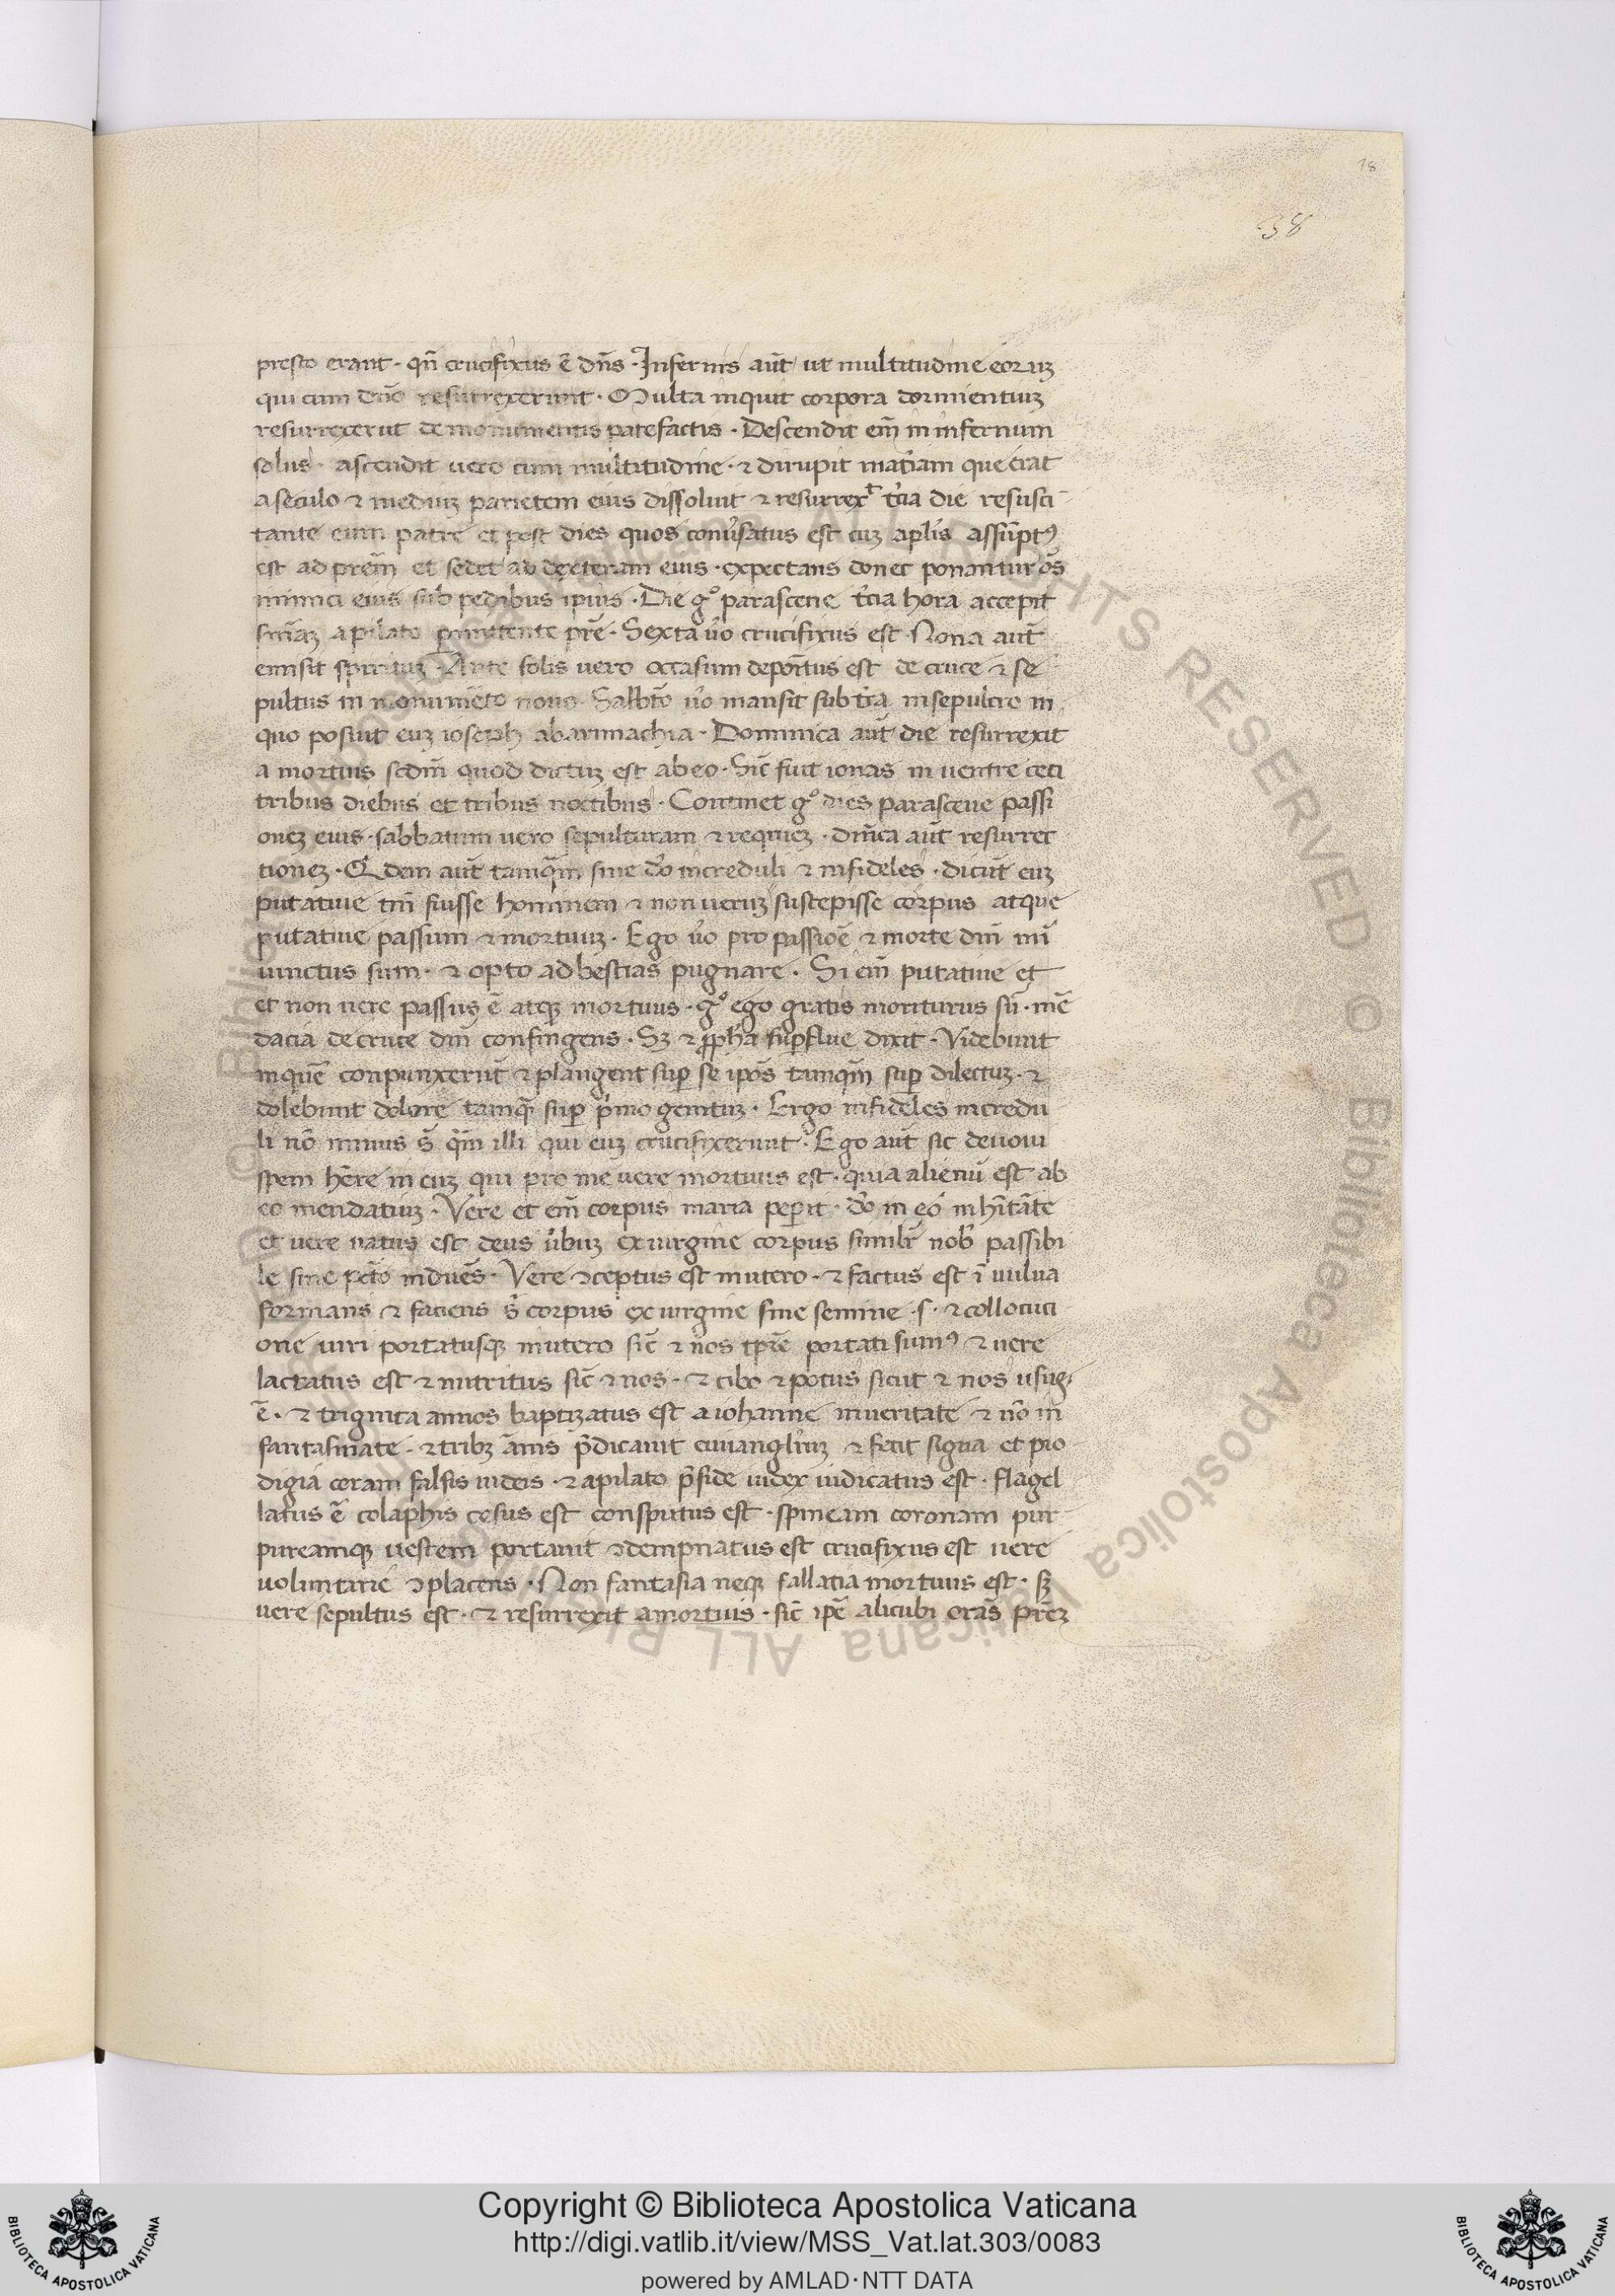 18
38
presto erant · qn̄ crucifixus ē dn̄s · Infernis aūt ut multitudine eorum
qui cum dn̄o resurrexerunt · Multa inquit corpora dormientuꝫ
resurrexerūt de monumentis patefactis · Descendit em̄ in infernum
solus · ascendit uero cum multitudine · ⁊ dirupit mat̄iam que erat
a seculo ⁊ mediuꝫ parietem eius dissoluit ⁊ resurrexᵗ t̄cia die resusci
tante eum patre et post dies quos conu̓satus est cuꝫ apl̓is assūptꝰ
est ad prēm et sedet ad dexteram eius · expectans donec ponantur oēs
inimici eius sub pedibus ipius · Die gͦ parasceue t̄cia hora accepit
sn̄iaꝫ a pilato pmittente prē · Sexta u̓o crucifixus est · Nona aūt
emisit spirituꝫ · Ante solis uero occasum deponitus est de cruce ⁊ se
pultus in monumēto nouo · Sabb̄to u̓o mansit sub t̄ra in sepulcro in
quo posuit euꝫ ioseph ab arimachia · Dominica aūt die resurrexit
a mortuis scdm̄ quod dictuꝫ est ab eo · Sic̄ fuit ionas in uentre ceti
tribus diebus et tribus noctibus · Continet gͦ dies parasceue passi
oneꝫ eius · sabbatum uero sepulturam ⁊ requieꝫ · dn̄ica aūt resurrec
tioneꝫ · Qͥdam aūt tamqͣm sine d̓o increduli ⁊ infideles · dicūt euꝫ
putatiue tm̄ fuisse hominem ⁊ non ueruꝫ suscepisse corpus atque
putatiue passum ⁊ mortuuꝫ · Ego u̓o pro passiōe ⁊ morte dn̄i mi
uinctus sum · ⁊ opto ad bestias pugnare · Si em̄ putatiue et
et non uere passus ē atqꝫ mortuus · gͦ ego gratis moriturus sū · mē
dacia de cruce dn̄i confingens · Sꝫ ⁊ ꝓpha sup̄flue dixit · Videbunt
in quē conpunxerūt ⁊ plangent sup̄ se ipōs tamqͣm sup̄ dilectuꝫ · ⁊
dolebunt dolore tamqͣ sup̄ pͥmo genituꝫ · Ergo infideles incredu
li nō minus s̄ qͣm illi qui euꝫ crucifixerunt · Ego aūt sic deuoui
spem hēre in euꝫ qui pro me uere mortuus est · quia alienū est ab
eo mendatiuꝫ · Vere et em̄ corpus maria pep̄it · d̓o in eo inhītāte
et uere natus est deus u̓buꝫ ex uirgine corpus similr̄ nob̓ passibi
le sine pctō induēs · Vere ꝯceptus est in utero · ⁊ factus est ī uulua
formans ⁊ faciens sͥ corpus ex uirgine sine semine · s · ⁊ collocuci
one uiri portatusqꝫ in utero sic̄ ⁊ nos tp̄re portati sumꝰ ⁊ uere
lactatus est ⁊ nutritus sic̄ ⁊ nos · ⁊ cibo ⁊ potus sicut ⁊ nos usus
ē · ⁊ triginta annos baptizatus est a iohanne in ueritate ⁊ nō in
fantasmate · ⁊ tribꝫ ānis p̄dicauit euuangl̓iuꝫ ⁊ fecit signa et pro
digia coram falsis iudeis · ⁊ a pilato p̄side iudex iudicatus est · flagel
latus ē colaphis cesus est consputus est · spineam coronam pur
pureamqꝫ uestem portauit ꝯdempnatus est crucifixus est uere
uoluntarie ꝯplacens · Non fantasia neqꝫ fallacia mortuus est · sꝫ
uere sepultus est · ⁊ resurrexit a mortuis · sic̄ ipē alicubi orās prēꝫ
© Biblioteca Apostolica Vaticana ALL RIGHTS RESERVED
Copyright © Biblioteca Apostolica Vaticana
http://digi.vatlib.it/view/MSS_Vat.lat.303/0083
powered by AMLAD·NTT DATA
BIBLIOTECA APOSTOLICA VATICANA
BIBLIOTECA APOSTOLICA VATICANA